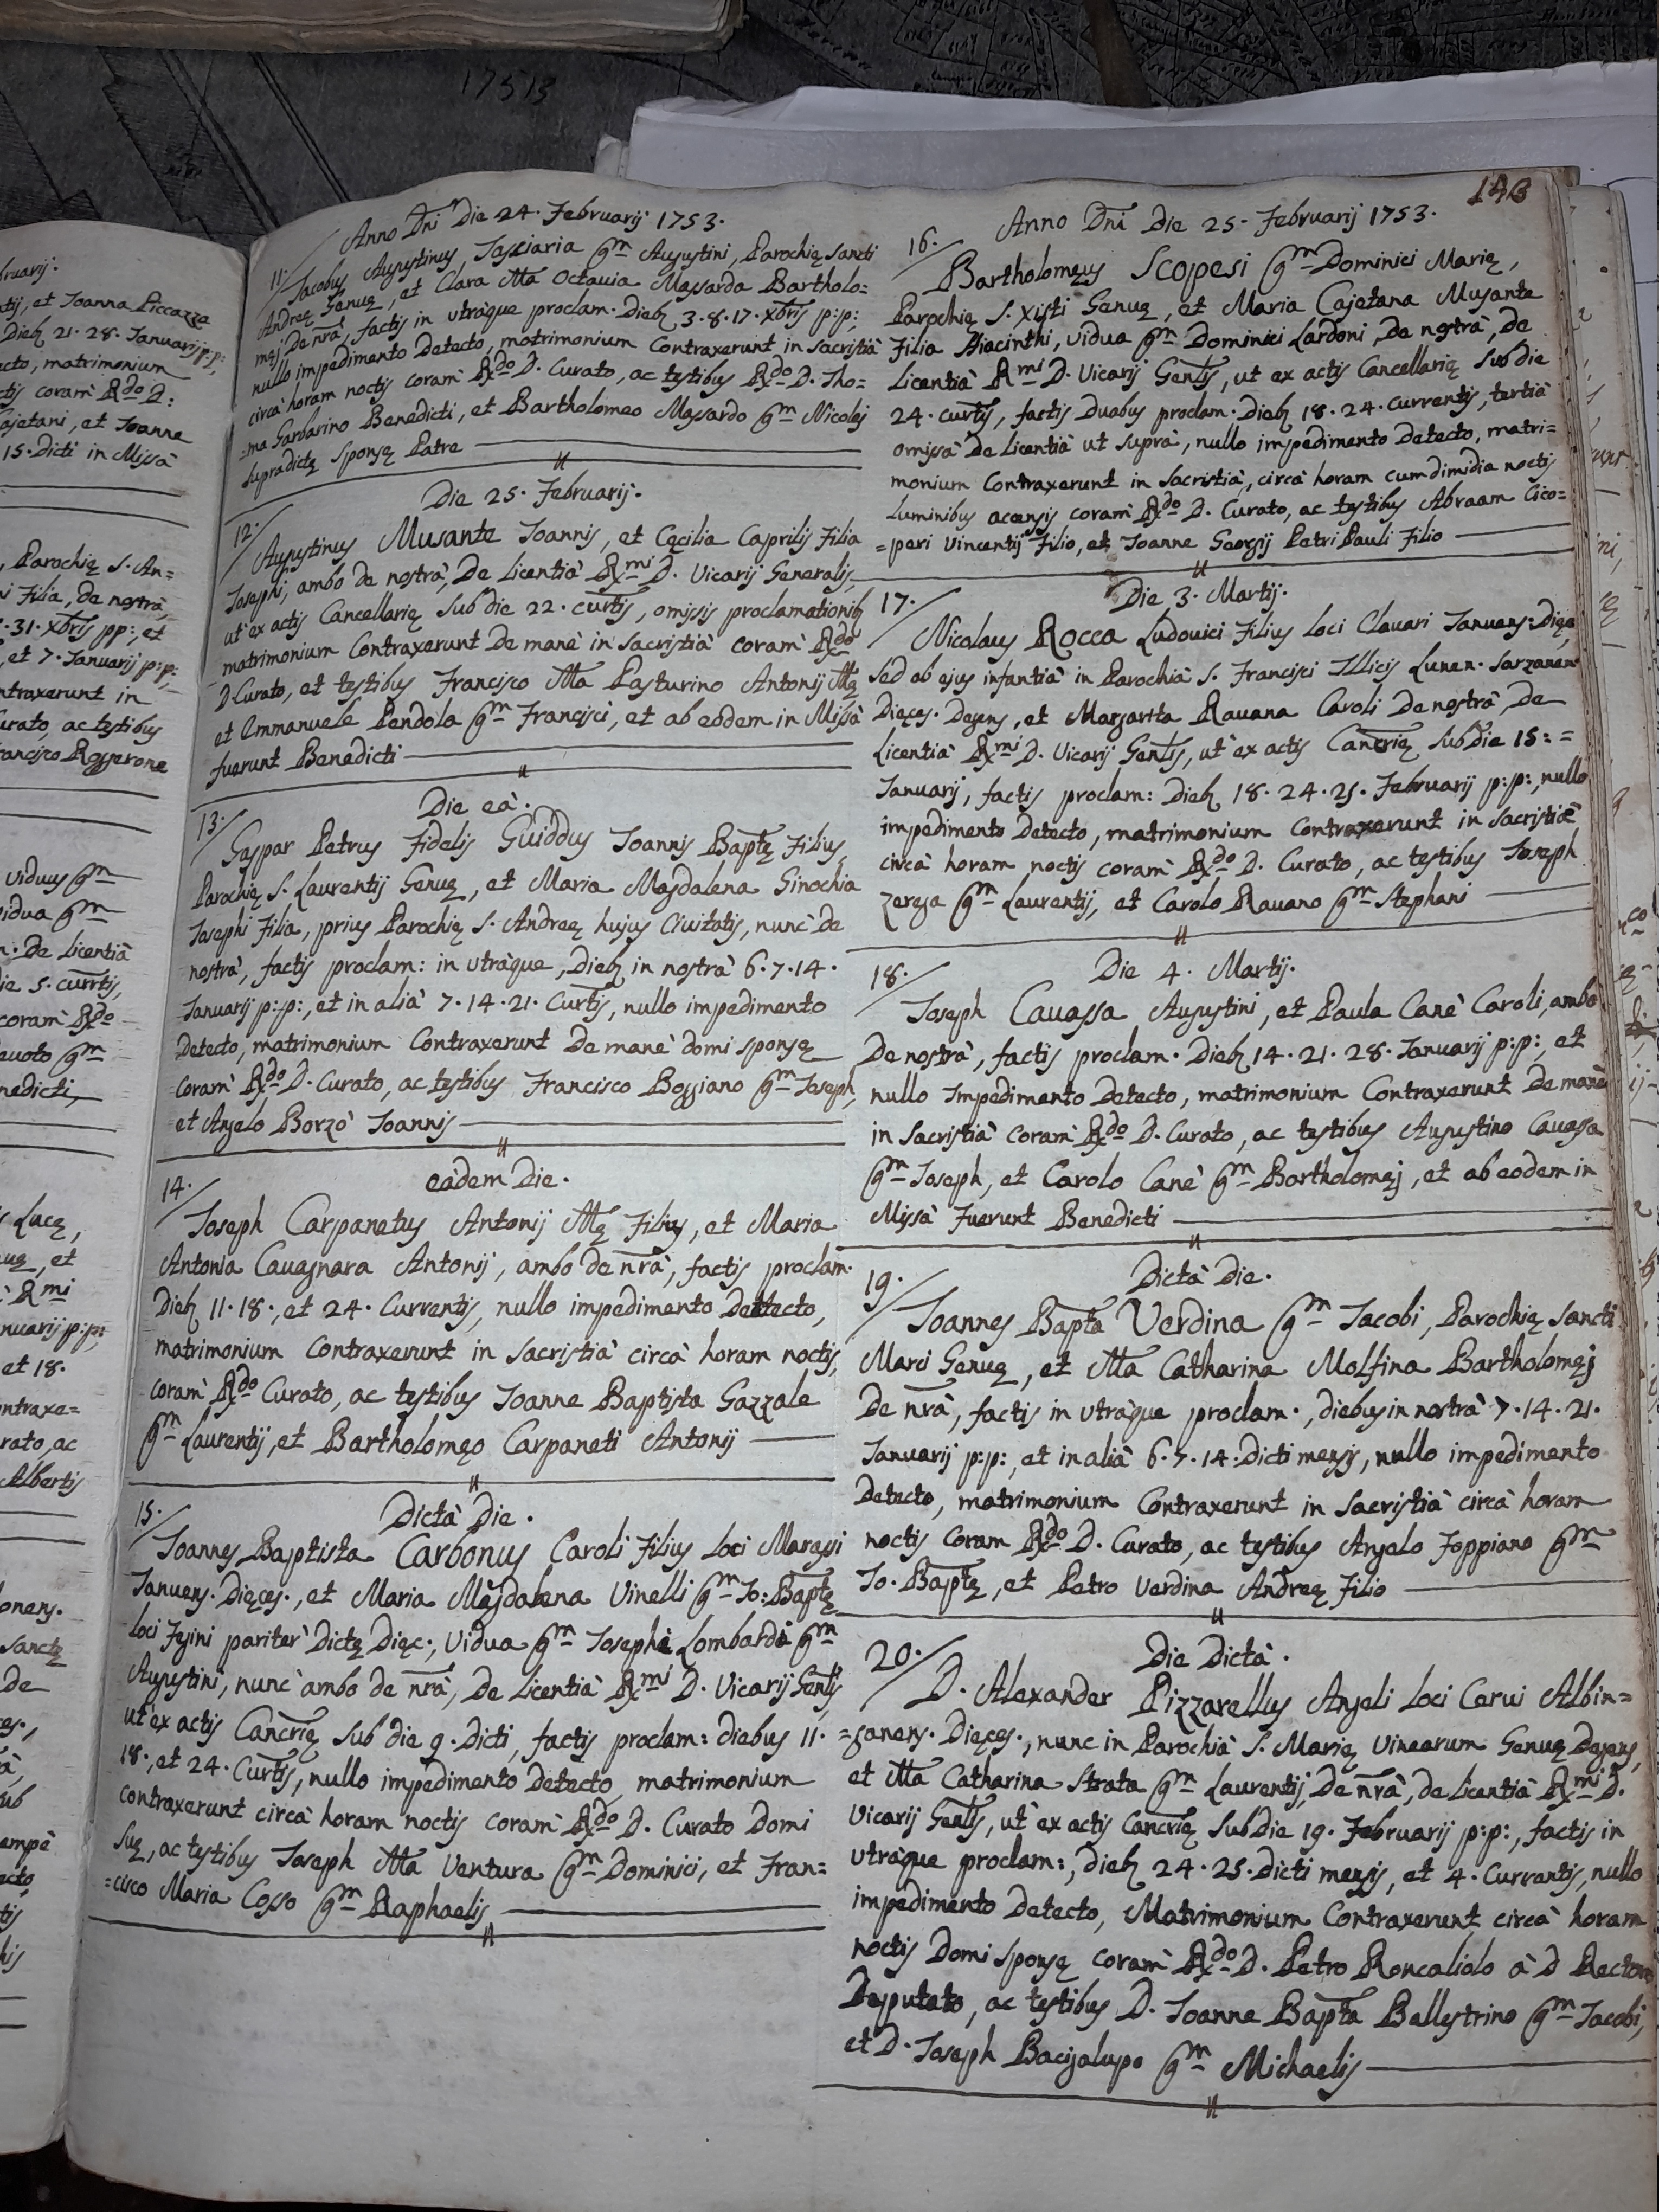 bruarij.
tij, et Joanna Piccazza
Dieb 21. 28. Januarij p:p:,
cto, matrimonium
tis coram Rdo D:
ajetani, et Joanne
15. Dicti in Missà
, Parochię S. An=
i Filia, de nostrà,
. 31. Xbris pp:, et
, et 7. Januarij p:p:
ntraxerunt in
urato, ac testibus
rancisco Roggerone
viduus qm
idua qm
n. de licentià
ie 5. currtis,
coram Rdo
euoto qm
nedicti,
s Lucę,
uę, et
Rmi
nuarij p:p:
et 18.
ontraxe=
rato, ac
Albertis
onens.
Sanctę
de
ampè
17513
143
Anno Dni Die 24. Februarij 1753.
11. Jacobus Augustinus Jasciaria qm Augustini, Parochię Sancti
Andreę Genuę, et Clara Ma Octauia Massarda Bartholo=
męj de nrà, factis in utràque proclam. Dieb 3. 8. 17. Xbris p:p:,
nullo impedimento detecto, matrimonium contraxerunt in sacristià
circà horam noctis coram Rdo D. Curato, ac testibus Rdo D. Tho=
=ma Garbarino Benedicti, et Bartholomeo Massardo qm Nicolaj
supradictę sponsę Patre
Die 25. Februarij.
12. Augustinus Musante Joannis, et Cęcilia Caprilis Filia
Josephi, ambo de nostrà, de licentià Rmi D. Vicarij Generalis,
ut ex actis Cancellarię sub die 22. curtis, omissis proclamationib
matrimonium contraxerunt de manè in sacristià coram Rdo
D Curato, et testibus Francisco Ma Pasturino Antonij Mę
et Emmanuele Pendola qm Francisci, et ab eodem in Missà
fuerunt Benedicti
Die eà.
13. Gaspar Petrus Fidelis Guiddus Joannis Baptę Filius
Parochię S. Laurentij Genuę, et Maria Magdalena Ginochia
Josephi Filia, prius Parochię S. Andreę hujus Ciuitatis, nunc de
nostrà, factis proclam: in utràque, Dieb in nostrà 6. 7. 14.
Januarij p:p:, et in alià 7. 14. 21. Curtis, nullo impedimento
detecto, matrimonium contraxerunt de manè domi sponsę
coram Rdo D. Curato, ac testibus Francisco Boggiano qm Joseph,
et Angelo Borzò Joannis
eàdem Die.
14. Joseph Carpanetus Antonij Mę Filius, et Maria
Antonia Cauagnara Antonij, ambo de nrà, factis proclam.
Dieb 11. 18., et 24. Currentis, nullo impedimento detecto,
matrimonium contraxerunt in sacristià circà horam noctis,
coram Rdo Curato, ac testibus Joanne Baptista Gazzale
qm Laurentij, et Bartholomęo Carpaneti Antonij
Dictà Die.
15. Joannes Baptista Carbonus Caroli Filius loci Marassi
Januens. Dięces., et Maria Magdalena Vinelli qm Jo: Baptę
loci Fegini pariter dictę Dięc:, vidua qm Josephi Lombardi qm
Augustini, nunc ambo de nrà, de licentià Rmi D. Vicarij Gentis
ut ex actis Cancrię sub die 9. Dicti, factis proclam: diebus 11.
18., et 24. Curtis, nullo impedimento detecto, matrimonium
contraxerunt circà horam noctis coram Rdo D. Curato Domi
suę, ac testibus Joseph Ma Ventura qm Dominici, et Fran=
=cisco Maria Cosso qm Raphaelis
Anno Dni Die 25. Februarij 1753.
16. Bartholomęus Scopesi qm Dominici Marię,
Parochię S. Xisti Genuę, et Maria Cajetana Musante
Filia Hiacinthi, vidua qm Dominici Lardoni, de nostrà, de
licentià Rmi D. Vicarij Gentis, ut ex actis Cancellarię sub die
24. curtis, factis duabus proclam. Dieb 18. 24. currentis, tertià
omissà de licentià ut suprà, nullo impedimento detecto, matri=
monium contraxerunt in sacristià, circà horam cum dimidia noctis
luminibus accensis coram Rdo D. Curato, ac testibus Abraam Cico=
=pari Vincentij Filio, et Joanne Georgij Petri Pauli Filio
Die 3. Martij.
17. Nicolaus Rocca Ludouici Filius loci Clauari Januens: Dięcs
sed ab ejus infantià in Parochià S. Francisci Illicis Lunen. Sarzanen
Dięces. Degens, et Margarita Rauana Caroli de nostrà, de
licentià Rmi D. Vicarij Gentis, ut ex actis Cancrię sub die 15: =
Januarij, factis proclam: Dieb 18. 24. 25. Februarij p:p:, nullo
impedimento detecto, matrimonium contraxerunt in sacristià
circà horam noctis coram Rdo D. Curato, ac testibus Joseph
Zerega qm Laurentij, et Carolo Rauano qm Stephani
Die 4. Martij.
18. Joseph Cauassa Augustini, et Paula Canè Caroli, ambo
de nostrà, factis proclam. Dieb 14. 21. 28. Januarij p:p:, et
nullo impedimento detecto, matrimonium contraxerunt de manè
in sacristià coram Rdo D. Curato, ac testibus Augustino Cauassa
qm Joseph, et Carolo Canè qm Bartholomęj, et ab eodem in
Missà fuerunt Benedicti
Dictà Die.
19. Joannes Bapta Verdina qm Jacobi, Parochię Sancti
Marci Genuę, et Ma Catharina Molfina Bartholomęj
de nrà, factis in utràque proclam., diebus in nostrà 7. 14. 21.
Januarij p:p:, et in alià 6. 7. 14. Dicti mensis, nullo impedimento
detecto, matrimonium contraxerunt in sacristià circà horam
noctis coram Rdo D. Curato, ac testibus Angelo Foppiano qm
Jo. Baptę, et Petro Verdina Andreę Filio
Die Dictà.
20. D. Alexander Pizzarellus Angeli loci Cerui Albin=
=ganens. Dięces., nunc in Parochià S. Marię Vinearum Genuę Degens,
et Ma Catharina Strata qm Laurentij, de nrà, de licentià Rmi D.
Vicarij Gentis, ut ex actis Cancrię sub die 19. Februarij p:p:, factis in
utràque proclam:, dieb 24. 25. Dicti mensis, et 4. Currentis, nullo
impedimento detecto, Matrimonium contraxerunt circà horam
noctis Domi sponsę coram Rdo D. Petro Roncaliolo à D Rectore
Deputato, ac testibus D. Joanne Bapta Ballestrino qm Jacobi,
et D. Joseph Bacigalupo qm Michaelis